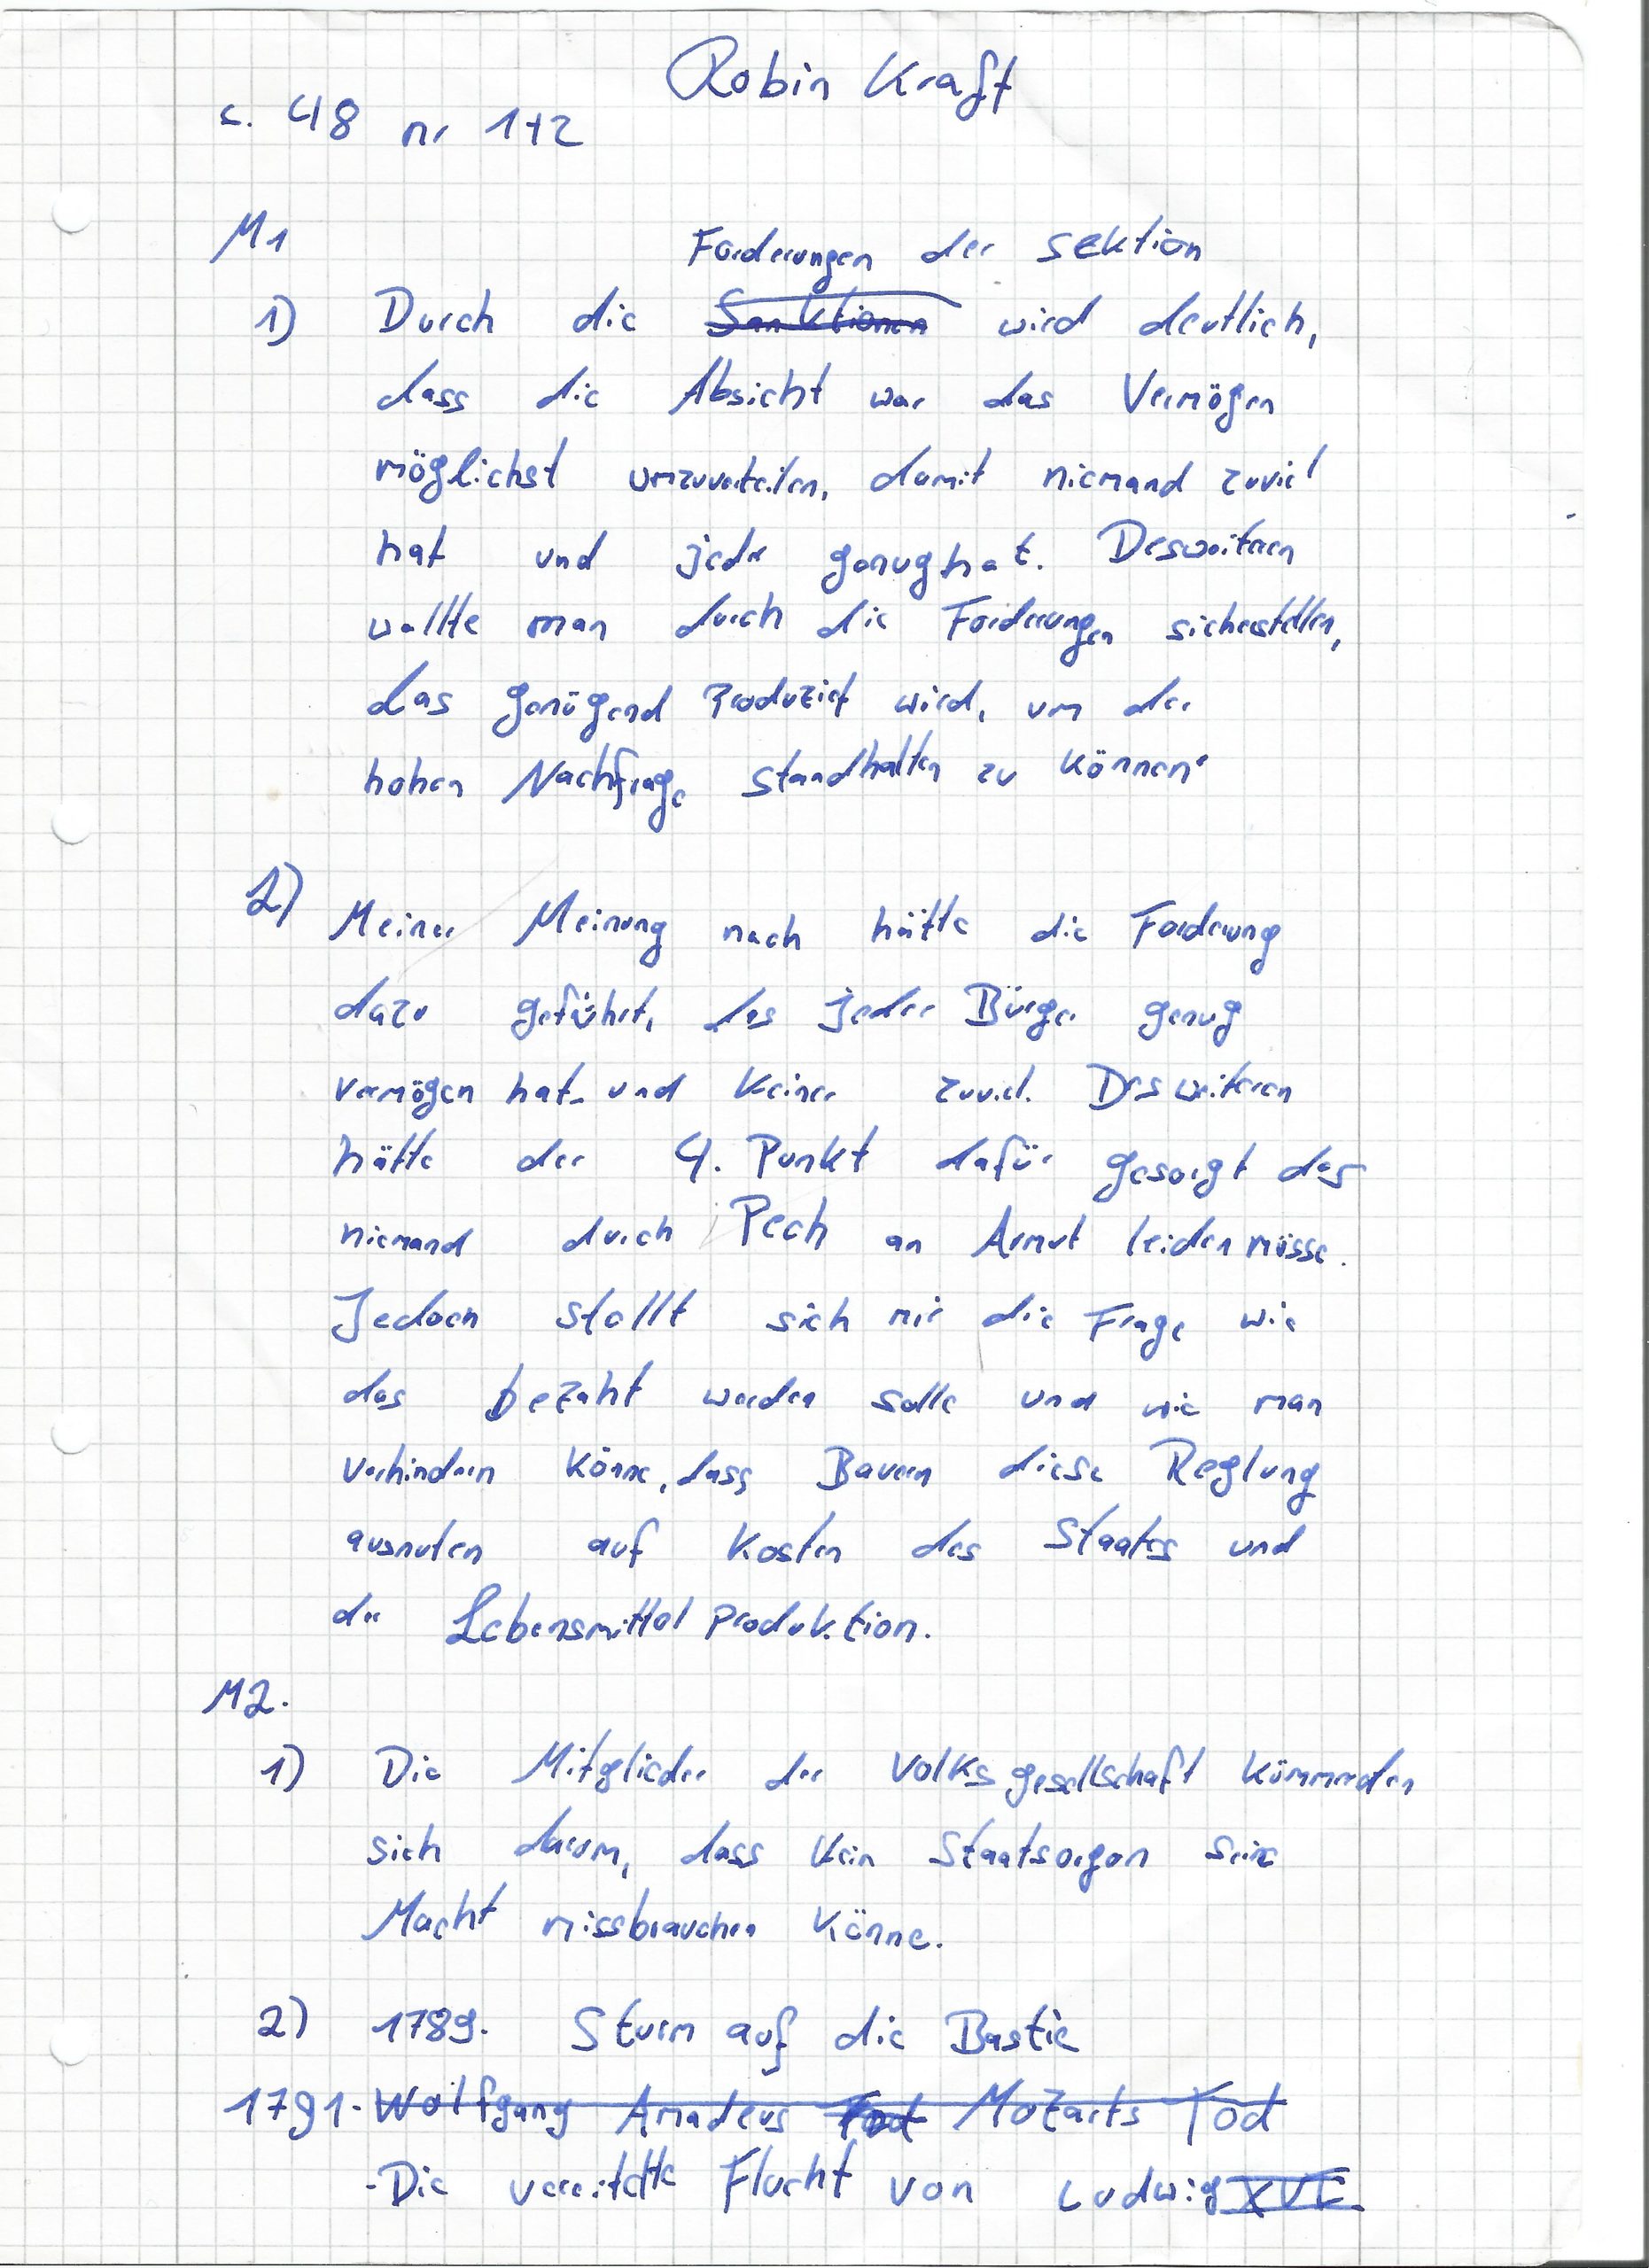 Robin Kraft
s. 48 nr 1+2
M1
Forderungen der Sektion
1) Durch die Sanktionen wird deutlich,
dass die Absicht war das Vermögen
möglichst umzuverteilen, damit niemand zuviel
hat und jeder genughat. Desweiteren
wollte man durch die Forderungen sicherstellen,
das genügend Produziert wird, um der
hohen Nachfrage standhalten zu können.
2) Meiner Meinung nach hätte die Forderung
dazu geführt, das jeder Bürger genug
vermögen hat und keiner zuviel. Des weiteren
hätte der 4. Punkt dafür gesorgt das
niemand durch Pech an Armut leiden müsse.
Jedoch stellt sich mir die Frage wie
das bezaht werden solle und wie man
verhindern könne, dass Bauern diese Reglung
ausnuten auf Kosten des Staates und
der Lebensmittel Produktion.
M2.
1) Die Mitglieder der Volksgesellschaft kümmerden
sich darum, dass kein Staatsorgan seine
Macht missbrauchen könne.
2) 1789. Sturm auf die Bastie
1791. Wolfgang Amadeus Tod Mozarts Tod
- Die vereitelte Flucht von Ludwig XVI.